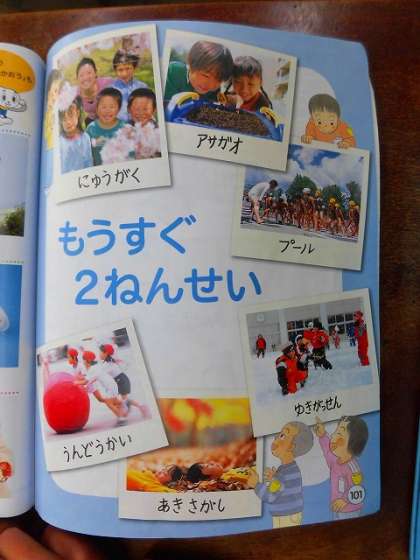 にゅうがく
アサガオ
プール
もうすぐ
2ねんせい
ゆきがっせん
うんどうかい
あきさがし
101